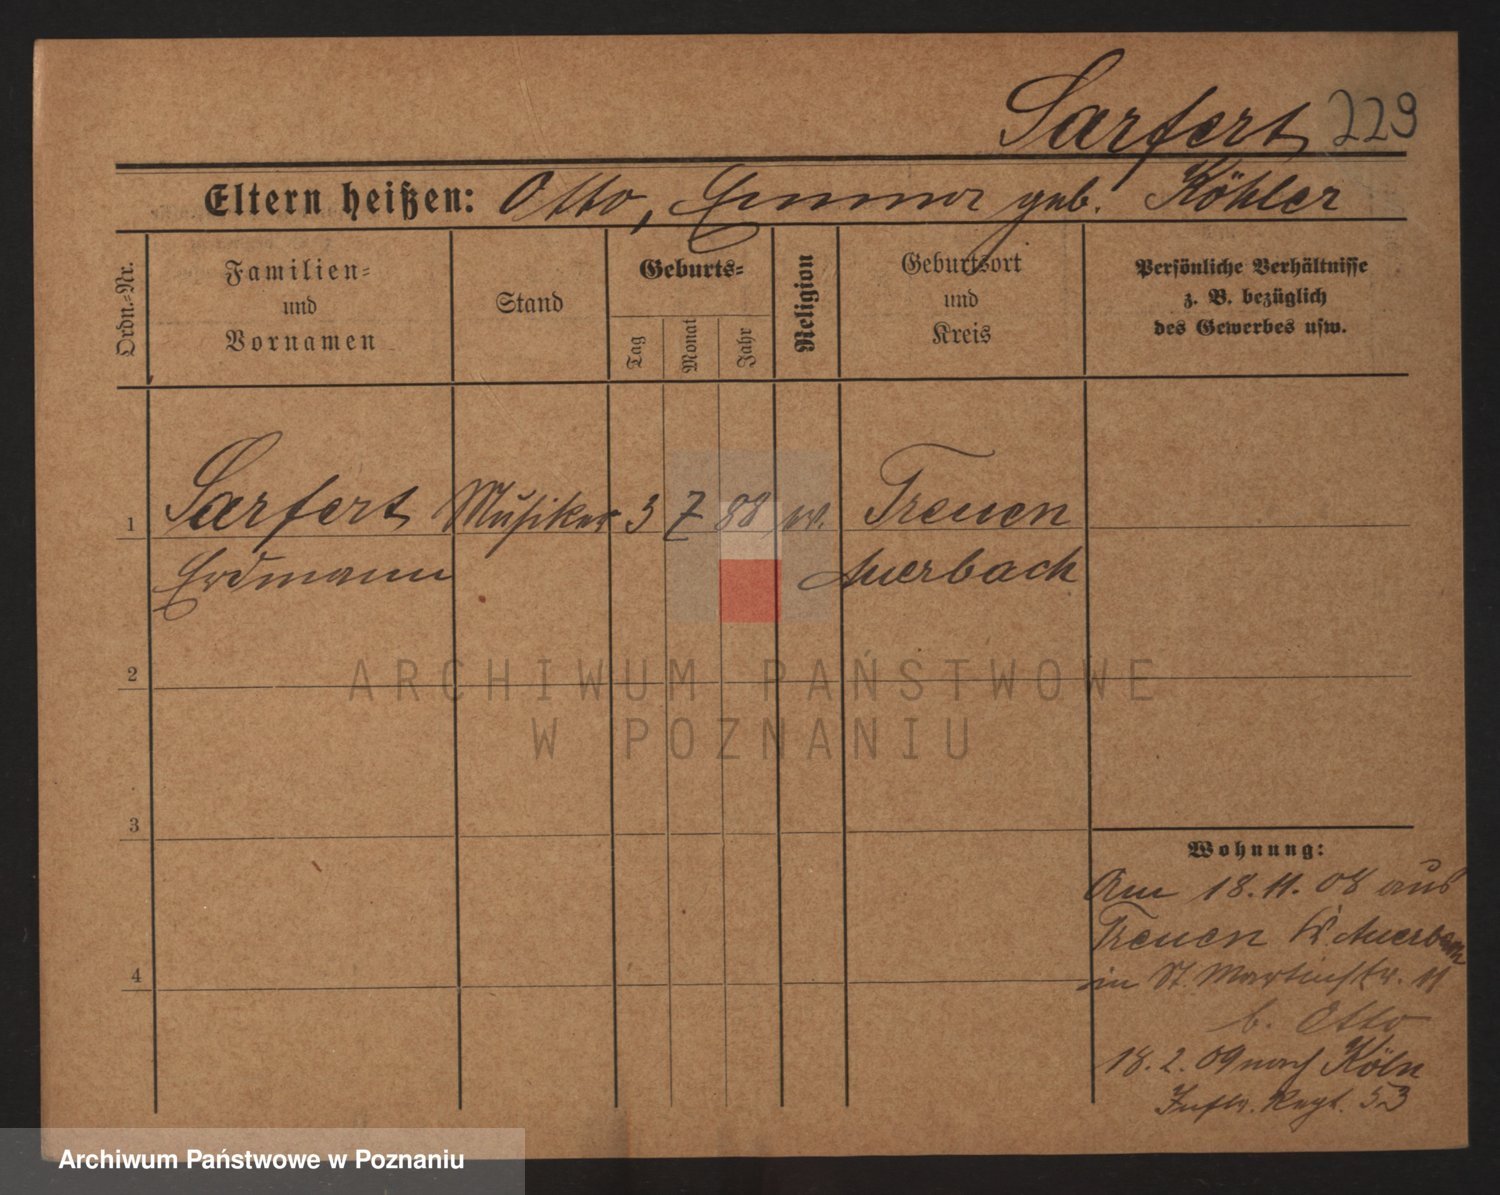 Sarfert 229
Eltern heißen: Otto, Emma geb. Köhler
Ordn.-Nr.
Familien-
und
Vornamen
Stand
Geburts-
Tag
Monat
Jahr
Religion
Geburtsort
und
Kreis
Persönliche Verhältnisse
z. B. bezüglich
des Gewerbes usw.
1 Sarfert Musiker 3 7 88 Treuen
Erdmann Auerbach
2
3
4
Wohnung:
Am 18.11.08 aus
Treuen Kr. Auerbach
in St. Martinstr. 11
b. Otto
18.2.09 nach Köln
Inftr. Regt. 53
ARCHIWUM PAŃSTWOWE
W POZNANIU
Archiwum Państwowe w Poznaniu